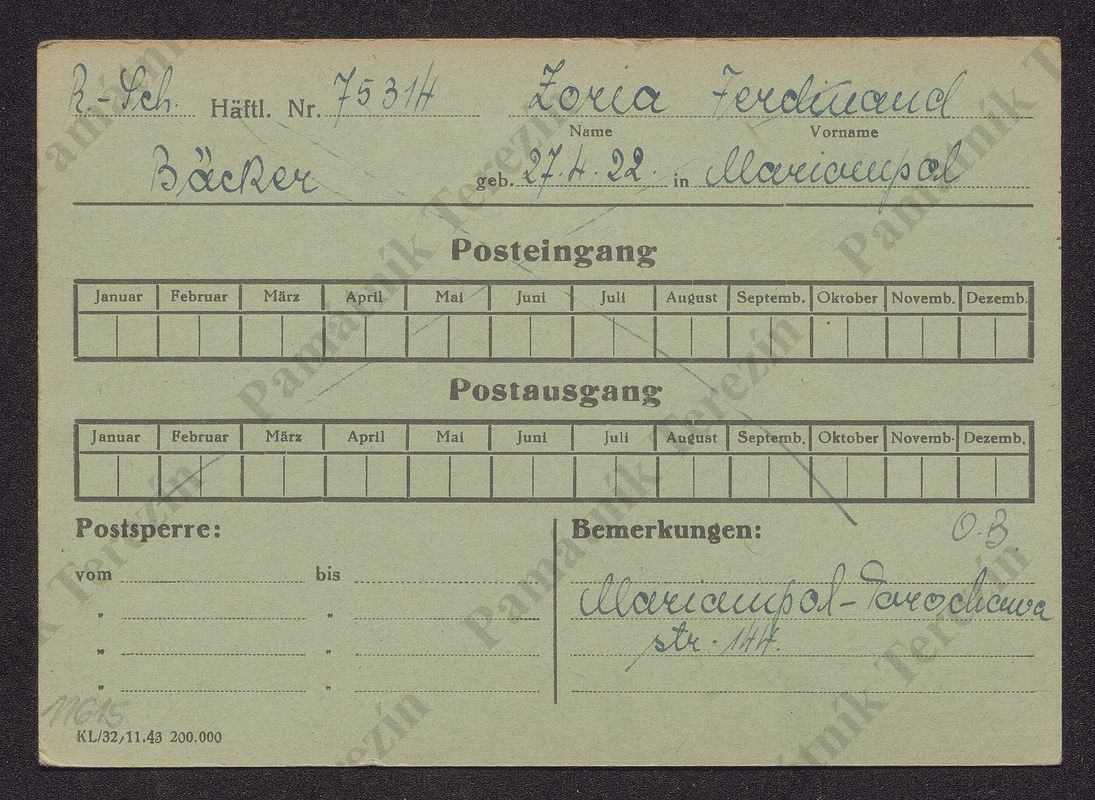 R.-Sch. Häftl. Nr. 75314 Zoria Ferdinand
Name Vorname
Bäcker geb. 27.4.22. in Mariampol
Posteingang
Januar Februar März April Mai Juni Juli August Septemb. Oktober Novemb. Dezemb.
Postausgang
Januar Februar März April Mai Juni Juli August Septemb. Oktober Novemb. Dezemb.
Postsperre: Bemerkungen: O.B.
vom bis
Mariampol-Parochawa
" "
str. 144.
" "
" "
11615
KL/32/11.43 200.000
Památník Terezín